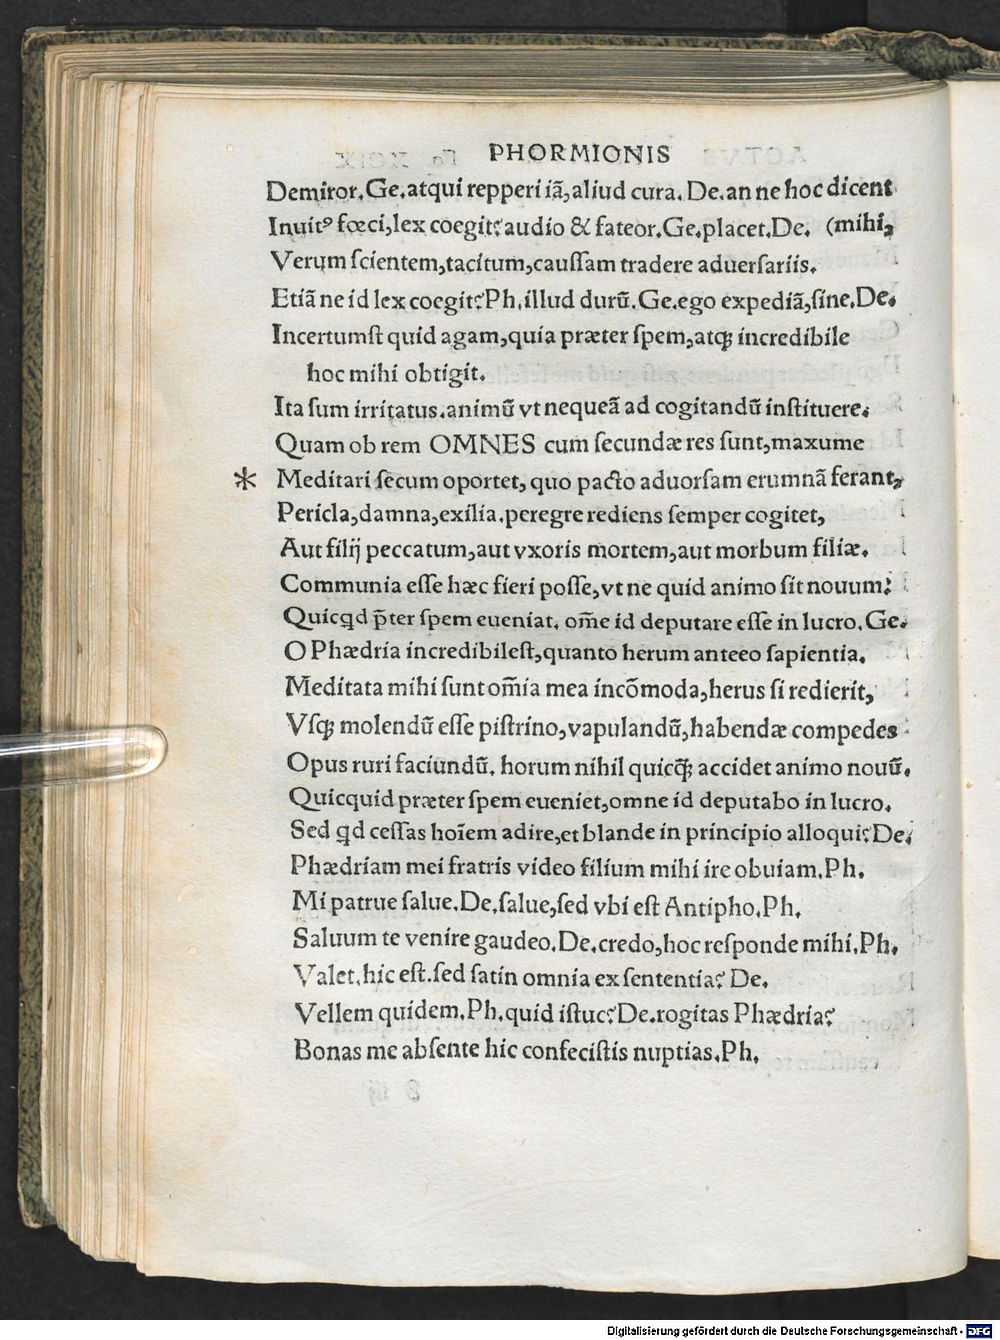 PHORMIONIS
Demiror. Ge. atqui repperi iã, aliud cura. De. an ne hoc dicent
Inuitꝰ fœci, lex coegit? audio & fateor. Ge. placet. De. (mihi,
Verum ſcientem, tacitum, cauſſam tradere aduerſariis.
Etiã ne id lex coegit? Ph. illud durũ. Ge. ego expediã, ſine. De.
Incertumſt quid agam, quia præter ſpem, atqꝫ incredibile
hoc mihi obtigit.
Ita ſum irritatus. animũ vt nequeã ad cogitandũ inſtituere.
Quam ob rem OMNES cum ſecundæ res ſunt, maxume
* Meditari ſecum oportet, quo pacto aduorſam erumnã ferant,
Pericla, damna, exilia. peregre rediens ſemper cogitet,
Aut filij peccatum, aut vxoris mortem, aut morbum filiæ.
Communia eſſe hæc fieri poſſe, vt ne quid animo ſit nouum:
Quicꝗd p̃ter ſpem eueniat. om̃e id deputare eſſe in lucro. Ge.
O Phædria incredibileſt, quanto herum anteeo ſapientia.
Meditata mihi ſunt om̃ia mea incõmoda, herus ſi redierit,
Vſqꝫ molendũ eſſe piſtrino, vapulandũ, habendæ compedes
Opus ruri faciundũ. horum nihil quicq̃ꝫ accidet animo nouũ.
Quicquid præter ſpem eueniet, omne id deputabo in lucro.
Sed ꝗd ceſſas hoĩem adire, et blande in principio alloqui? De.
Phædriam mei fratris video filium mihi ire obuiam. Ph.
Mi patrue ſalue. De. ſalue, ſed vbi eſt Antipho. Ph.
Saluum te venire gaudeo. De. credo, hoc reſponde mihi. Ph.
Valet. hic eſt. ſed ſatin omnia ex ſententia? De.
Vellem quidem. Ph. quid iſtuc? De. rogitas Phædria?
Bonas me abſente hic confeciſtis nuptias. Ph.
Digitalisierung gefördert durch die Deutsche Forschungsgemeinschaft - DFG